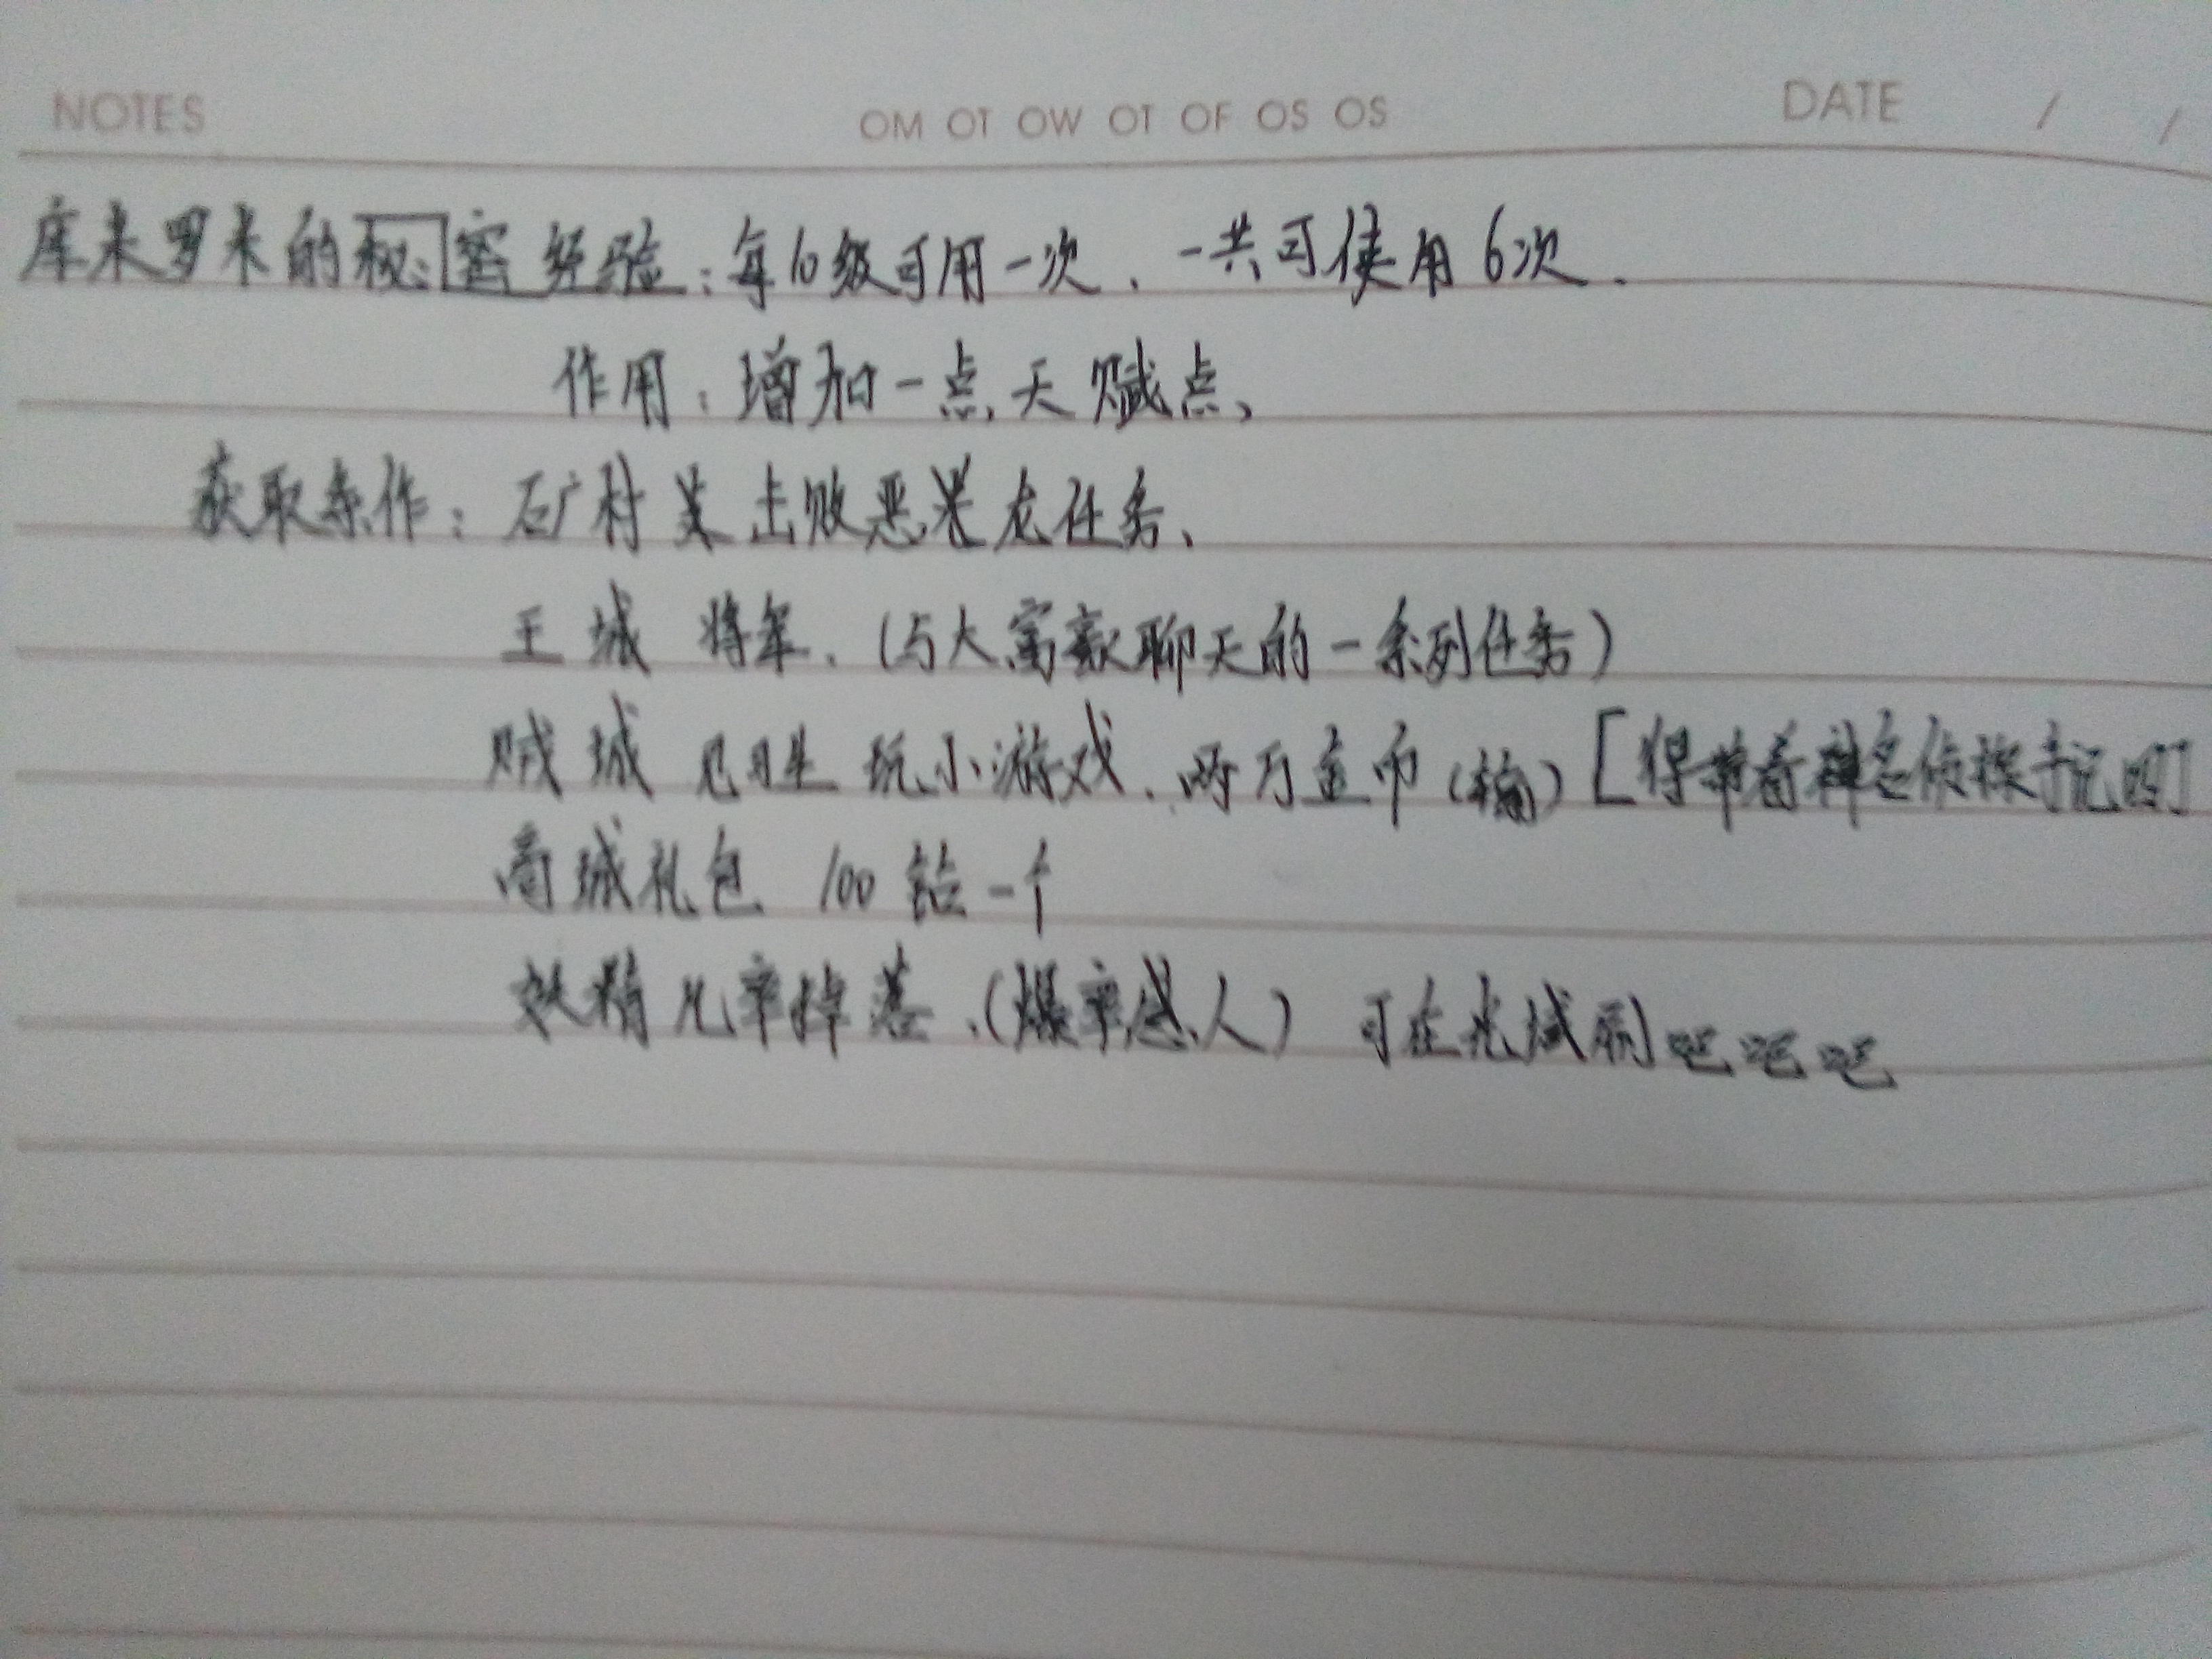 NOTES OM OT OW OT OF OS OS DATE / /
库米罗米的秘密经验：每10级可用一次、一共可使用6次.
作用：增加一点天赋点、
获取条件：石矿村 某击败恶 龙任务、
王城 将军、(与大富豪聊天的一系列任务)
贼城 玩小游戏、两万金币(输) [得带着神名侦探手记的]
商城礼包 100钻一个
妖精几率掉落、(爆率感人) 可在 域刷吧吧吧